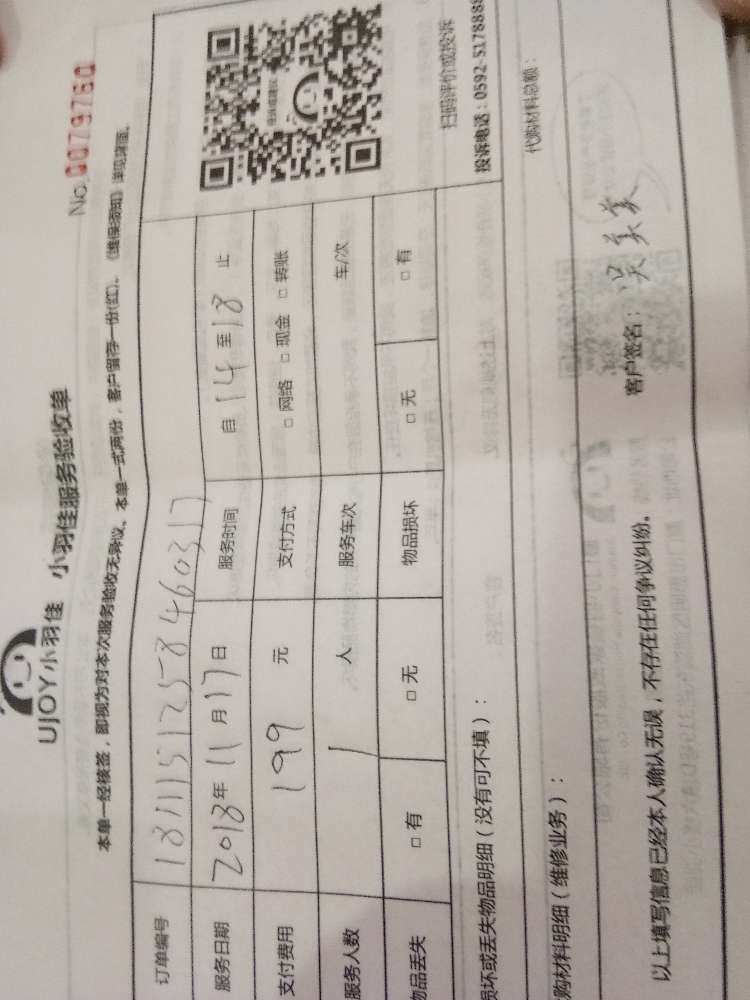 UJOY小羽佳 小羽佳服务验收单
No.0079760
本单一经核签，即视为对本次服务验收无异议。本单一式两份，客户留存一份(红)。《维保须知》详见背面。
订单编号 1811151258460317
服务日期 2018年11月17日 服务时间 自14至18止
支付费用 199元 支付方式 □网络 □现金 □转账
服务人数 1人 服务车次 车/次
物品丢失 □有 □无 物品损坏 □无 □有
扫码评价或投诉
投诉电话：0592-5178888
损坏或丢失物品明细（没有可不填）：
购材料明细（维修业务）： 代购材料总额：
以上填写信息已经本人确认无误，不存在任何争议纠纷。 客户签名：吴美美